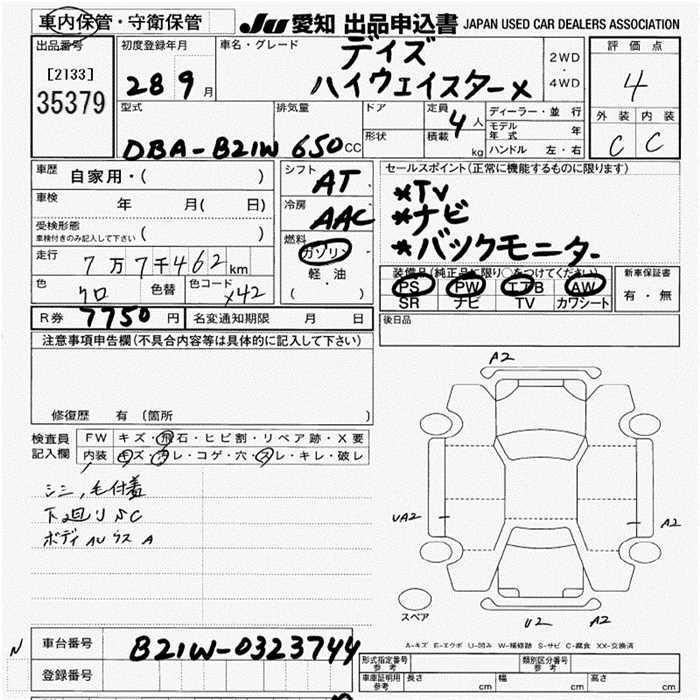 車内保管・守衛保管 JU 愛知 出品申込書 JAPAN USED CAR DEALERS ASSOCIATION
出品番号 [2133] 35379
初度登録年月 28 9月
車名・グレード デイズ ハイウェイスターX
2WD・4WD
評価点 4
型式 DBA-B21W
排気量 650cc
ドア
形状
定員 4人
積載 kg
ディーラー・並行
モデル年式 年
ハンドル 左・右
外装 C 内装 C
車歴 自家用・( )
車検 年 月(日)
受検形態 車検付きのみ記入して下さい ( )
走行 7万7千462km
色 クロ 色替 色コード X42
シフト AT
冷房 AAC
燃料 ガソリン 軽・油 ( )
セールスポイント(正常に機能するものに限ります)
*TV
*ナビ
*バックモニター
装備品(純正品に限り○をつけてください)
PS PW エアB AW
SR ナビ TV カワシート
新車保証書 有・無
R券 7750円 名変通知期限 月 日
後日品
注意事項申告欄(不具合内容等は具体的に記入して下さい)
修復歴 有 (箇所 )
検査員記入欄
FW キズ・飛石・ヒビ割・リペア跡・X要
内装 キズ・ヨゴレ・コゲ・穴・スレ・キレ・破レ
シミ、毛付着
下廻りSC
ボディAUラスA
A2
UA2
A2
スペア
U2 A2
A-キズ E-エクボ U-凹み W-補修跡 S-サビ C-腐食 XX-交換済
N
車台番号 B21W-0323744
登録番号
形式指定番号 参考
類別区分番号 参考
車庫証明用 参考 長さ cm 巾 cm 高さ cm